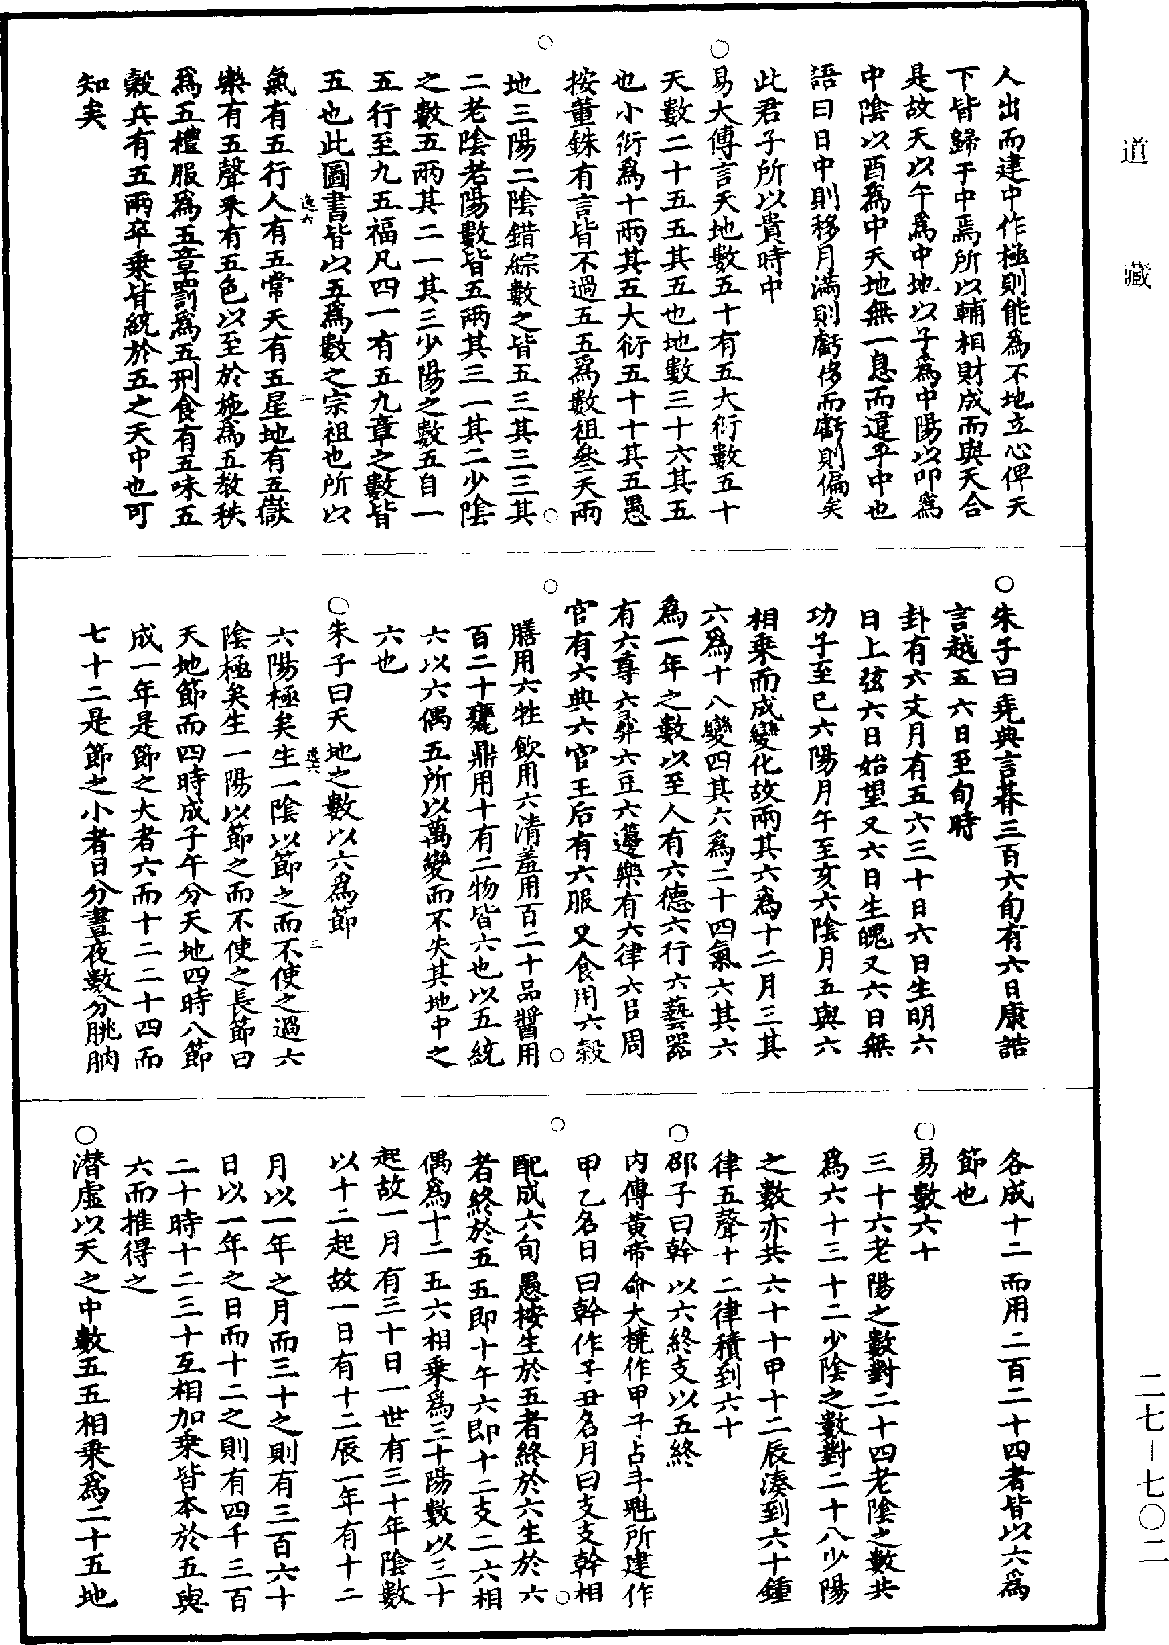 道藏
人出而建中作極則能為不地立心俾天
下皆歸于中焉所以輔相財成而與天合
是故天以午為中地以子為中陽以卯為
中陰以酉為中天地無一息而違乎中也
語曰日中則移月滿則虧侈而虧則偏矣
此君子所以貴時中
○易大傳言天地數五十有五大衍數五十
天數二十五五其五也地數三十六其五
也小衍為十兩其五大衍五十十其五愚
按董銖有言皆不過五五為數祖叁天兩
地三陽二陰錯綜數之皆五三其三三其
二老陰老陽數皆五兩其三一其二少陰
之數五兩其二一其三少陽之數五自一
五行至九五福凡四一有五九章之數皆
五也此圖書皆以五為數之宗祖也所以
氣有五行人有五常天有五星地有五嶽
樂有五聲采有五色以至於施為五教秩
為五禮服為五章罰為五刑食有五味五
穀兵有五兩卒乘皆統於五之天中也可
知矣
○朱子曰堯典言朞三百六旬有六日康誥
言越五六日至旬時
卦有六爻月有五六三十日六日生明六
日上弦六日始望又六日生魄又六日無
功子至巳六陽月午至亥六陰月五與六
相乘而成變化故兩其六為十二月三其
六為十八變四其六為二十四氣六其六
為一年之數以至人有六德六行六藝器
有六尊六彝六豆六籩樂有六律六呂周
官有六典六官王后有六服又食用六穀
膳用六牲飲用六清羞用百二十品醬用
百二十甕鼎用十有二物皆六也以五統
六以六偶五所以萬變而不失其地中之
六也
○朱子曰天地之數以六為節
六陽極矣生一陰以節之而不使之過六
陰極矣生一陽以節之而不使之長節曰
天地節而四時成子午分天地四時八節
成一年是節之大者六而十二二十四而
七十二是節之小者日分晝夜數分朓朒
各成十二而用二百二十四者皆以六為
節也
○易數六十
三十六老陽之數對二十四老陰之數共
為六十三十二少陰之數對二十八少陽
之數亦共六十十甲十二辰湊到六十鍾
律五聲十二律積到六十
○邵子曰幹以六終支以五終
內傳黃帝命大撓作甲子占斗魁所建作
甲乙名日曰幹作子丑名月曰支支幹相
配成六旬愚按生於五者終於六生於六
者終於五五即十午六即十二支二六相
偶為十二五六相乘為三十陽數以三十
起故一月有三十日一世有三十年陰數
以十二起故一日有十二辰一年有十二
月以一年之月而三十之則有三百六十
日以一年之日而十二之則有四千三百
二十時十二三十互相加乘皆本於五與
六而推得之
○潛虛以天之中數五五相乘為二十五地
二七—七〇二